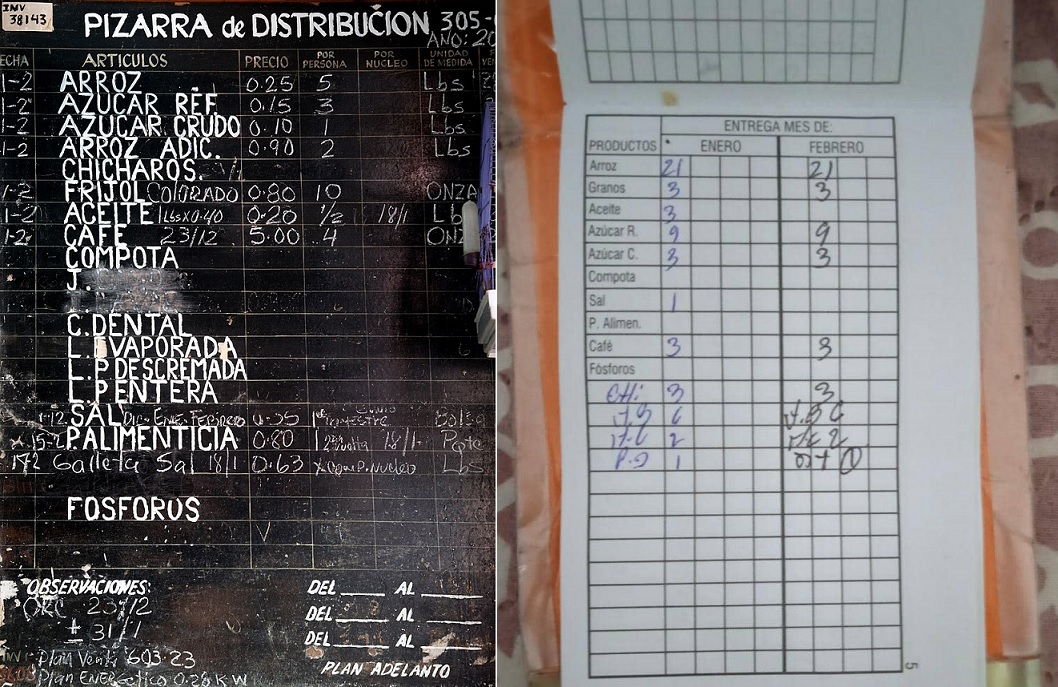 INV
38143
PIZARRA de DISTRIBUCION 305-
AÑO: 20
ECHA ARTICULOS PRECIO POR PERSONA POR NUCLEO UNIDAD DE MEDIDA VEN
1-2 ARROZ 0.25 5 Lbs
1-2 AZUCAR REF. 0.15 3 Lbs
1-2 AZUCAR CRUDO 0.10 1 Lbs
1-2 ARROZ ADIC. 0.90 2 Lbs
CHICHAROS.
1-2 FRIJOL COLORADO 0.80 10 ONZA
1-2 ACEITE 1Lbsx0.40 0.20 1/2 18/1 Lb
1-2 CAFE 23/12 5.00 4 ONZ
COMPOTA
J.
C.DENTAL
L.EVAPORADA
L.P DESCREMADA
L.P ENTERA
1-12 SAL Dic-Ene-Febrero 0.35 1er trimestre Bolsa
15-2 P.ALIMENTICIA 0.80 1 2da vuelta 18/1 Pqte
Galleta Sal 18/1 0.63 x Comp. Nucleo Lbs
FOSFORUS
OBSERVACIONES:
23/12
± 31/1
Plan Venti 603.23
Plan ENERgetico 0.28 KW
DEL AL
DEL AL
DEL AL
PLAN ADELANTO
ENTREGA MES DE:
PRODUCTOS ENERO FEBRERO
Arroz 21 21
Granos 3 3
Aceite 3
Azúcar R. 9 9
Azúcar C. 3 3
Compota
Sal 1
P. Alimen.
Café 3 3
Fósforos
CHi 3 3
6
2
1
5